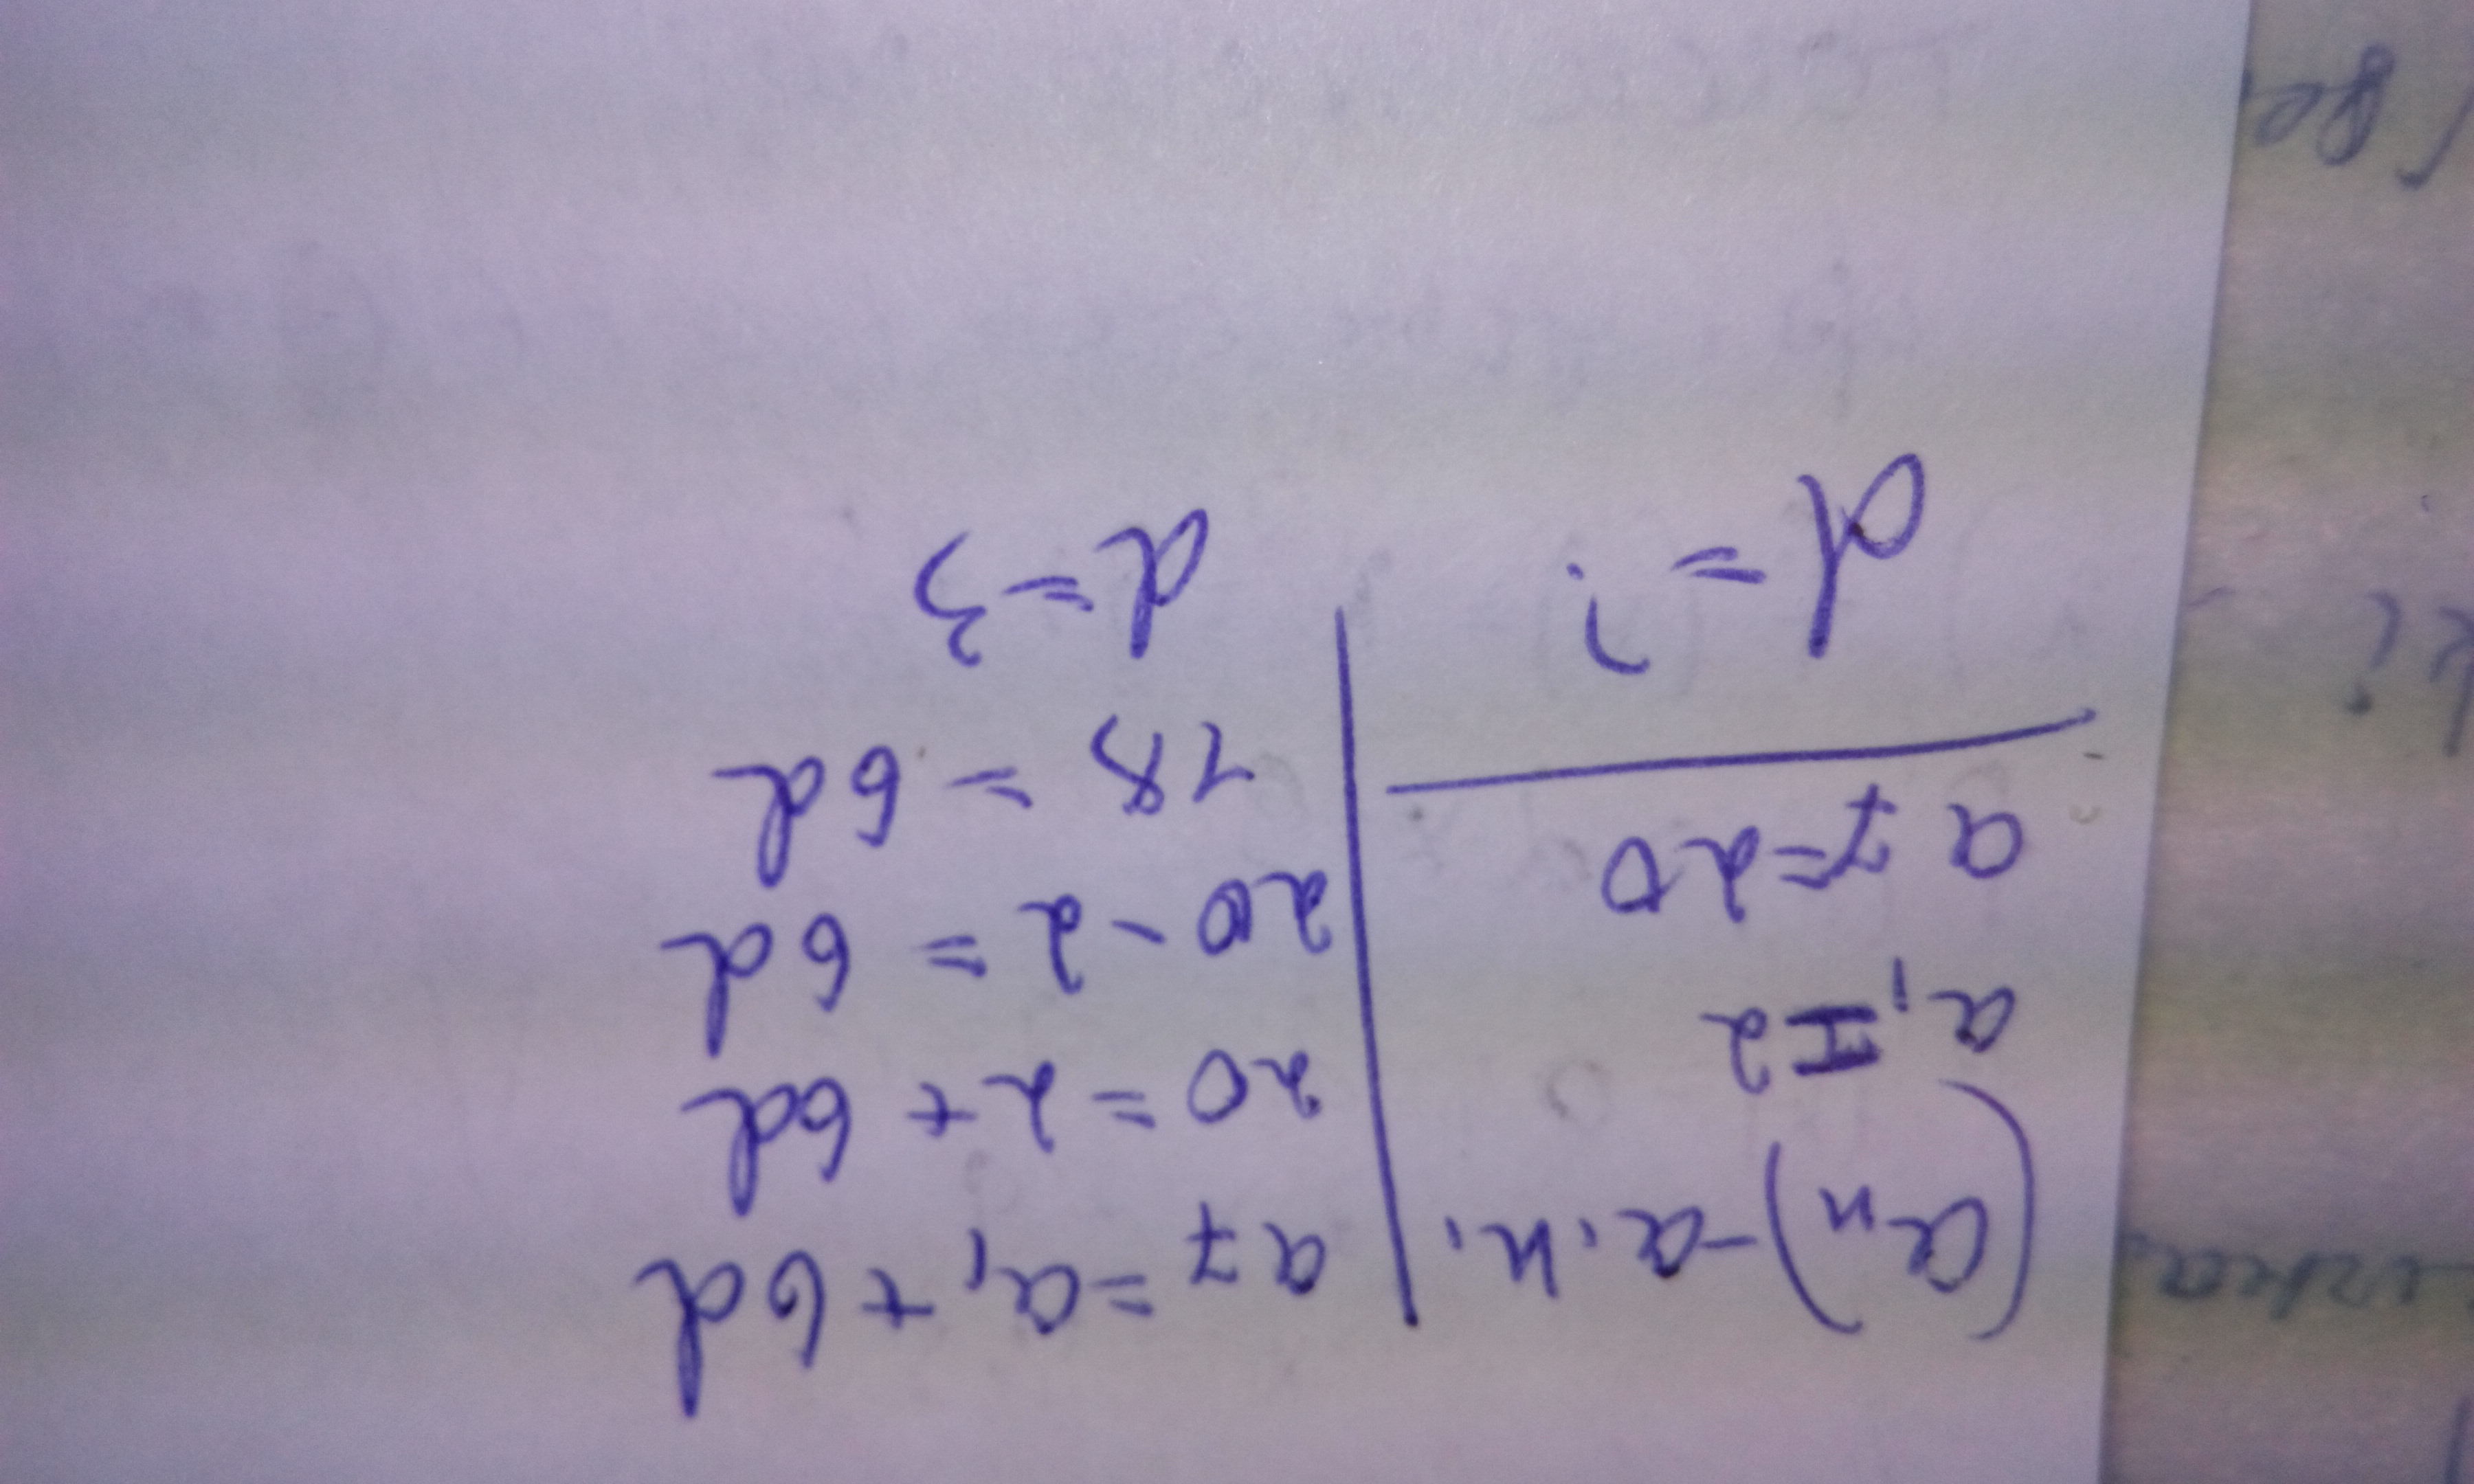 (aₙ) - а.п.
a₁ = 2
a₇ = 20
d = ?
a₇ = a₁ + 6d
20 = 2 + 6d
20 - 2 = 6d
18 = 6d
d = 3